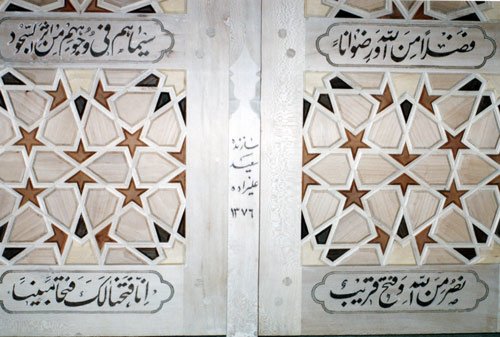 فضلاً من الله و رضواناً
سیماهم فی وجوههم من اثر السجود
سازنده
سعید
علیزاده
۱۳۷۶
نصر من الله و فتح قریب
انا فتحنا لک فتحا مبینا